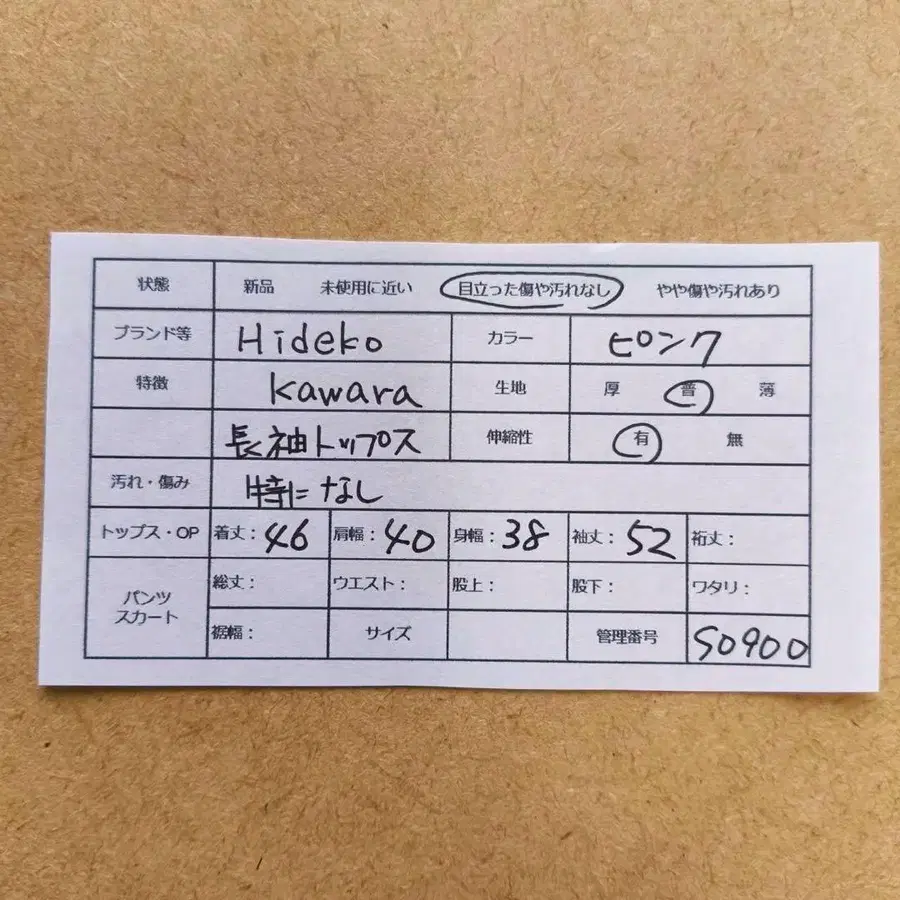 状態 新品 未使用に近い 目立った傷や汚れなし やや傷や汚れあり
ブランド等 Hideko カラー ピンク
特徴 Kawara 生地 厚 普 薄
長袖トップス 伸縮性 有 無
汚れ・傷み 特になし
トップス・OP 着丈:46 肩幅:40 身幅:38 袖丈:52 裄丈:
パンツ スカート 総丈: ウエスト: 股上: 股下: ワタリ:
裾幅: サイズ 管理番号 S0900